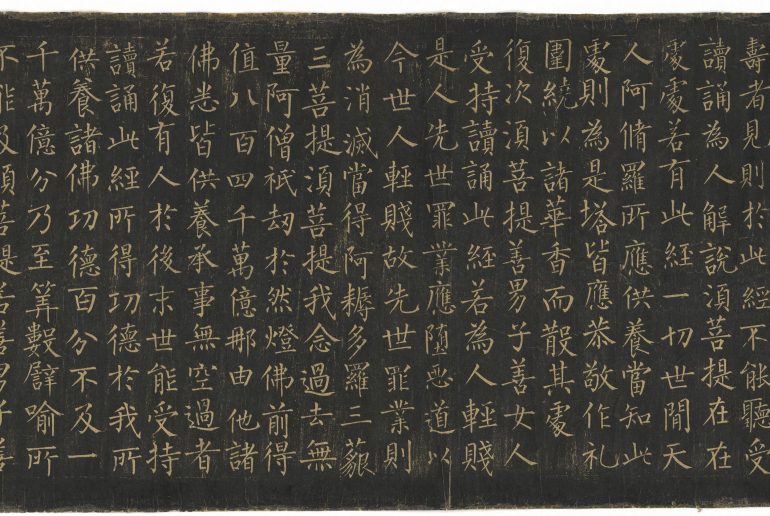 壽者見則於此經不能聽受
讀誦為人解說須菩提在在
處處若有此經一切世間天
人阿脩羅所應供養當知此
處則為是塔皆應恭敬作礼
圍繞以諸華香而散其處
復次須菩提善男子善女人
受持讀誦此經若為人輕賤
是人先世罪業應墮惡道以
今世人輕賤故先世罪業則
為消滅當得阿耨多羅三藐
三菩提須菩提我念過去無
量阿僧祇劫於然燈佛前得
值八百四千萬億那由他諸
佛悉皆供養承事無空過者
若復有人於後末世能受持
讀誦此經所得功德於我所
供養諸佛功德百分不及一
千萬億分乃至筭數譬喻所
不能及須菩提若善男子善